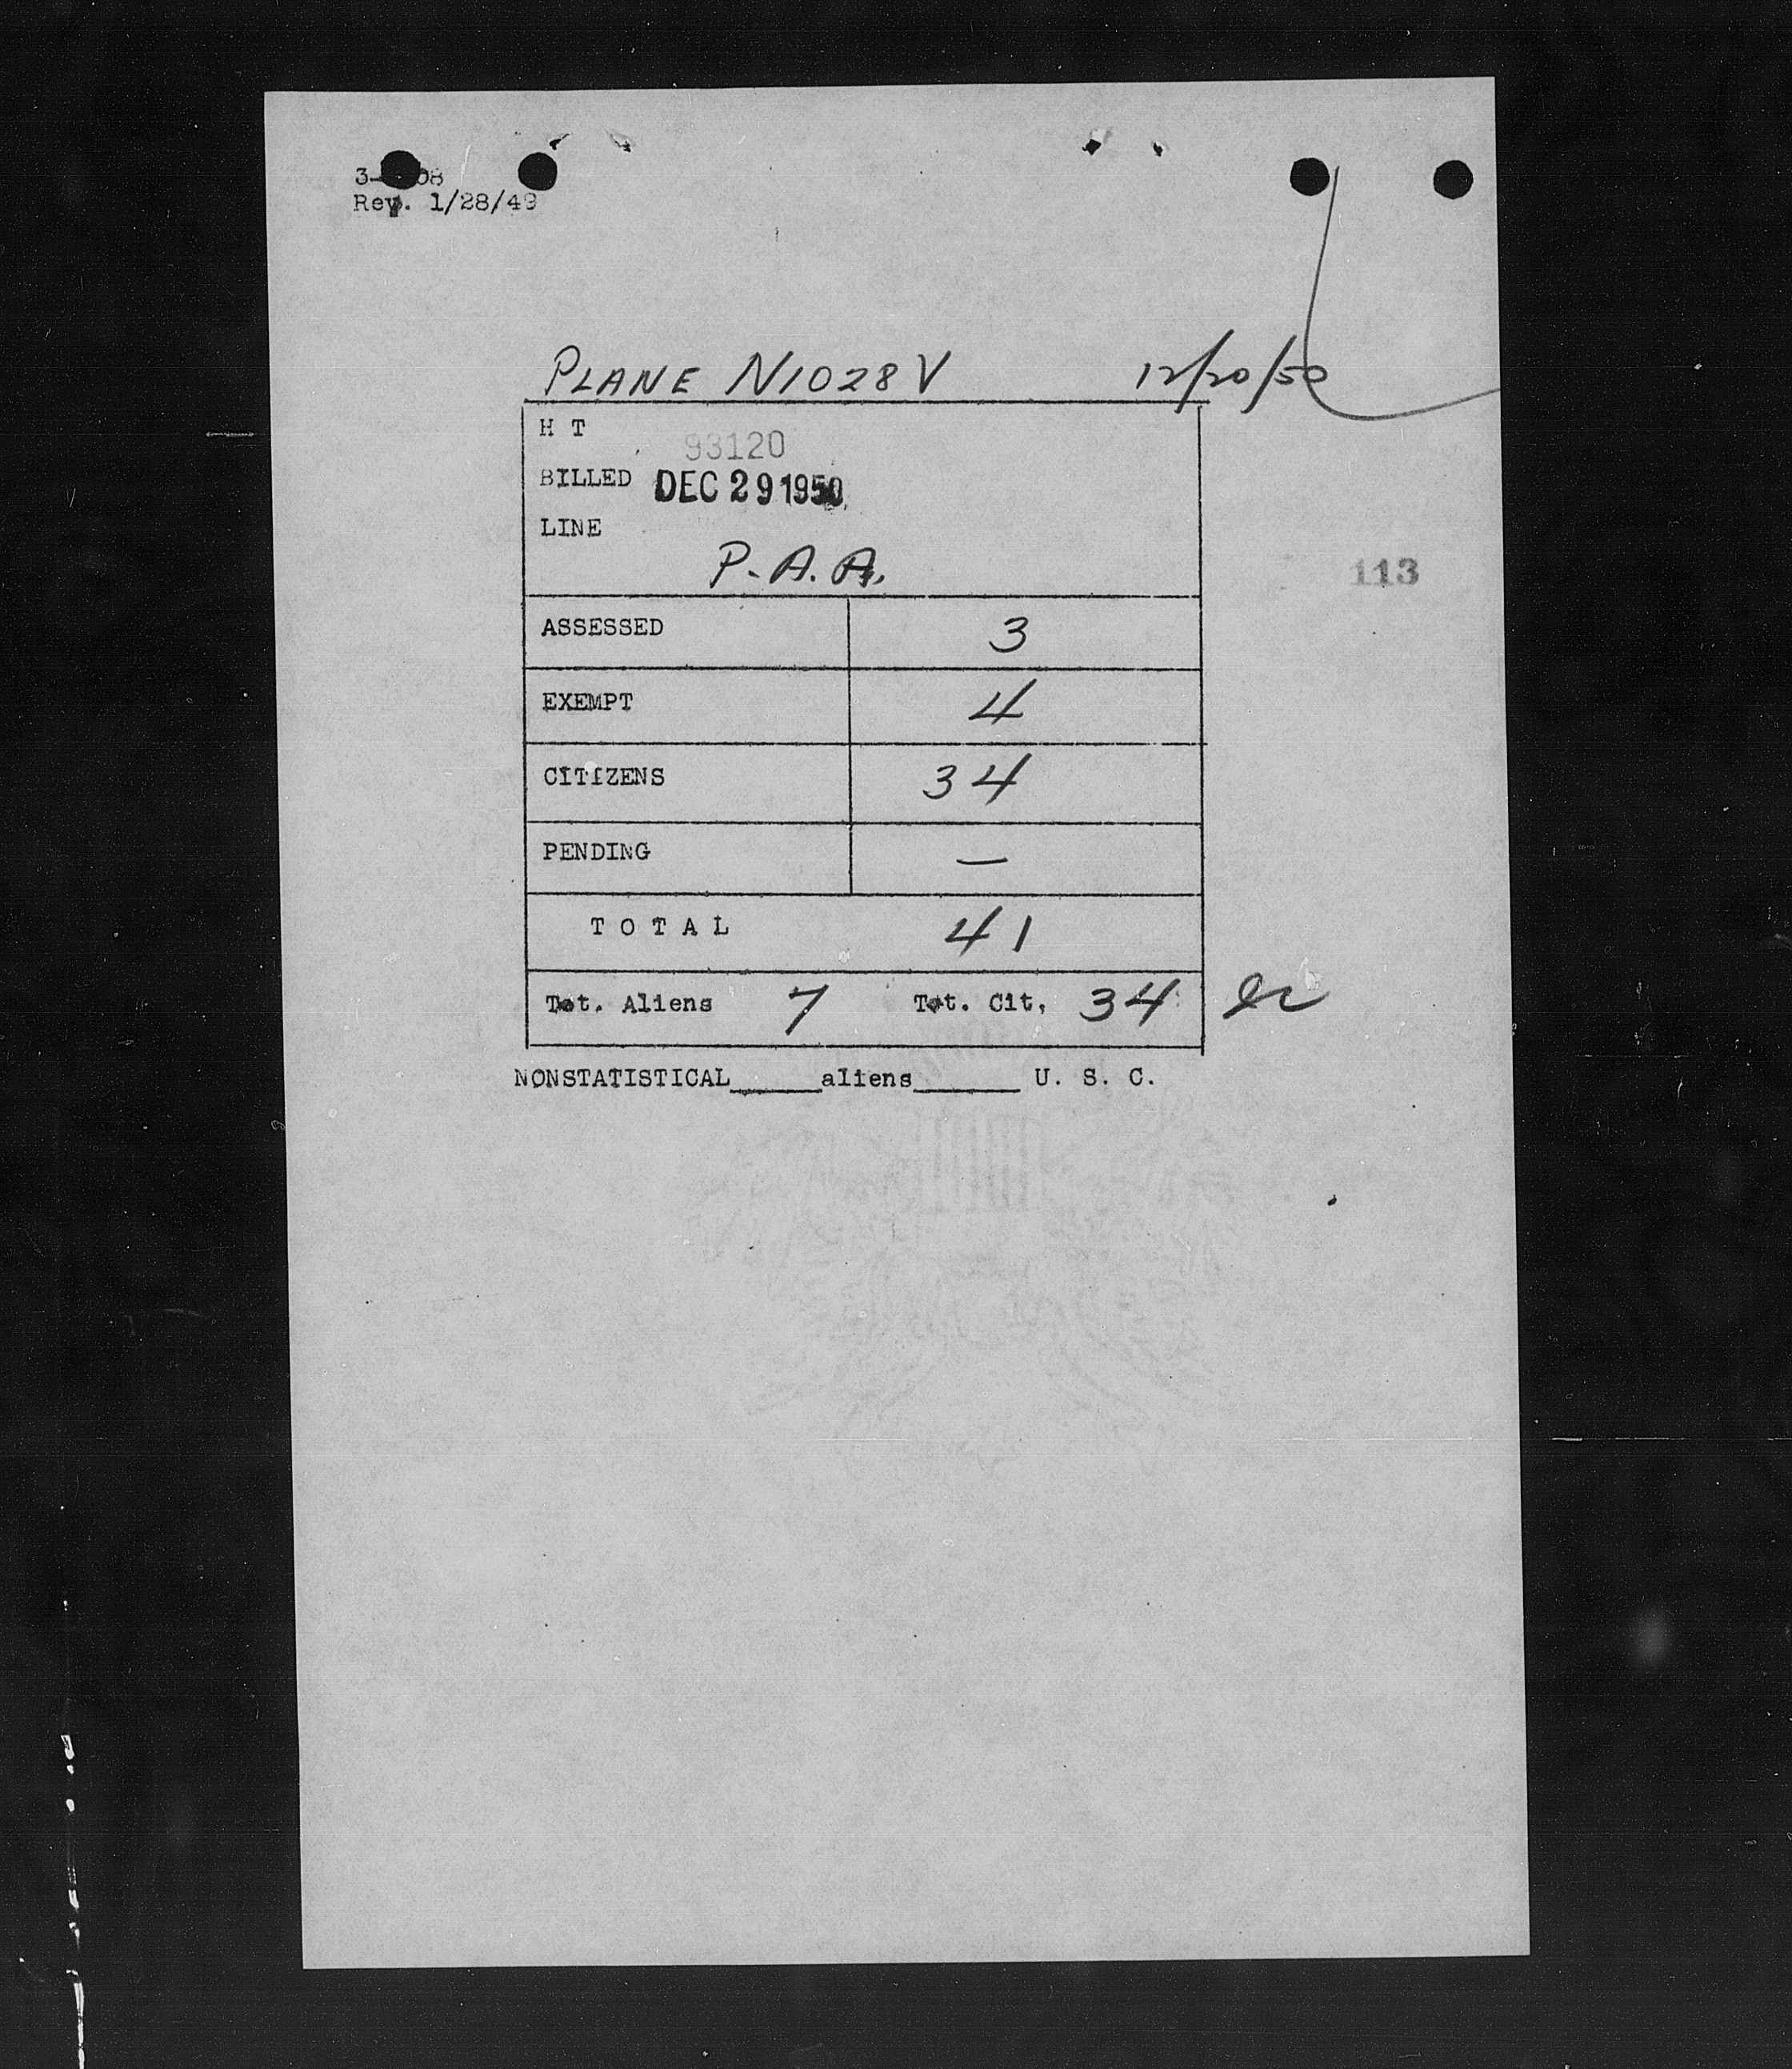 Rev. 1/28/49
PLANE N1028V 12/20/50
H T
93120
BILLED DEC 29 1950
LINE
P.A.A.
113
ASSESSED 3
EXEMPT 4
CITIZENS 34
PENDING —
TOTAL 41
Tot. Aliens 7 Tot. Cit. 34
NONSTATISTICAL______aliens_______ U. S. C.